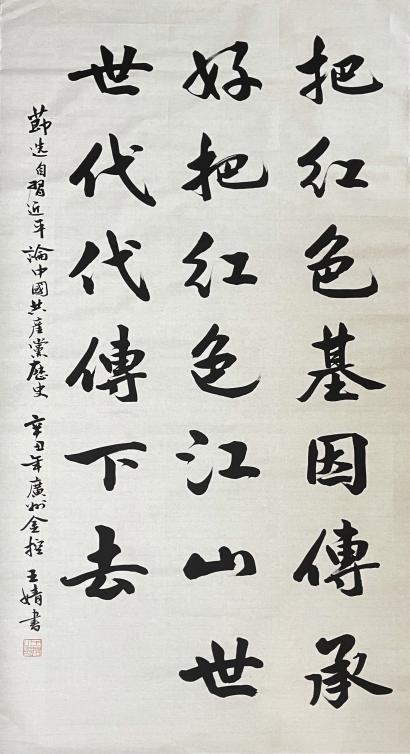 把红色基因傳承
好把红色江山世
世代代傳下去
節选自習近平論中國共產黨歷史 辛丑年廣州金控 王婧書